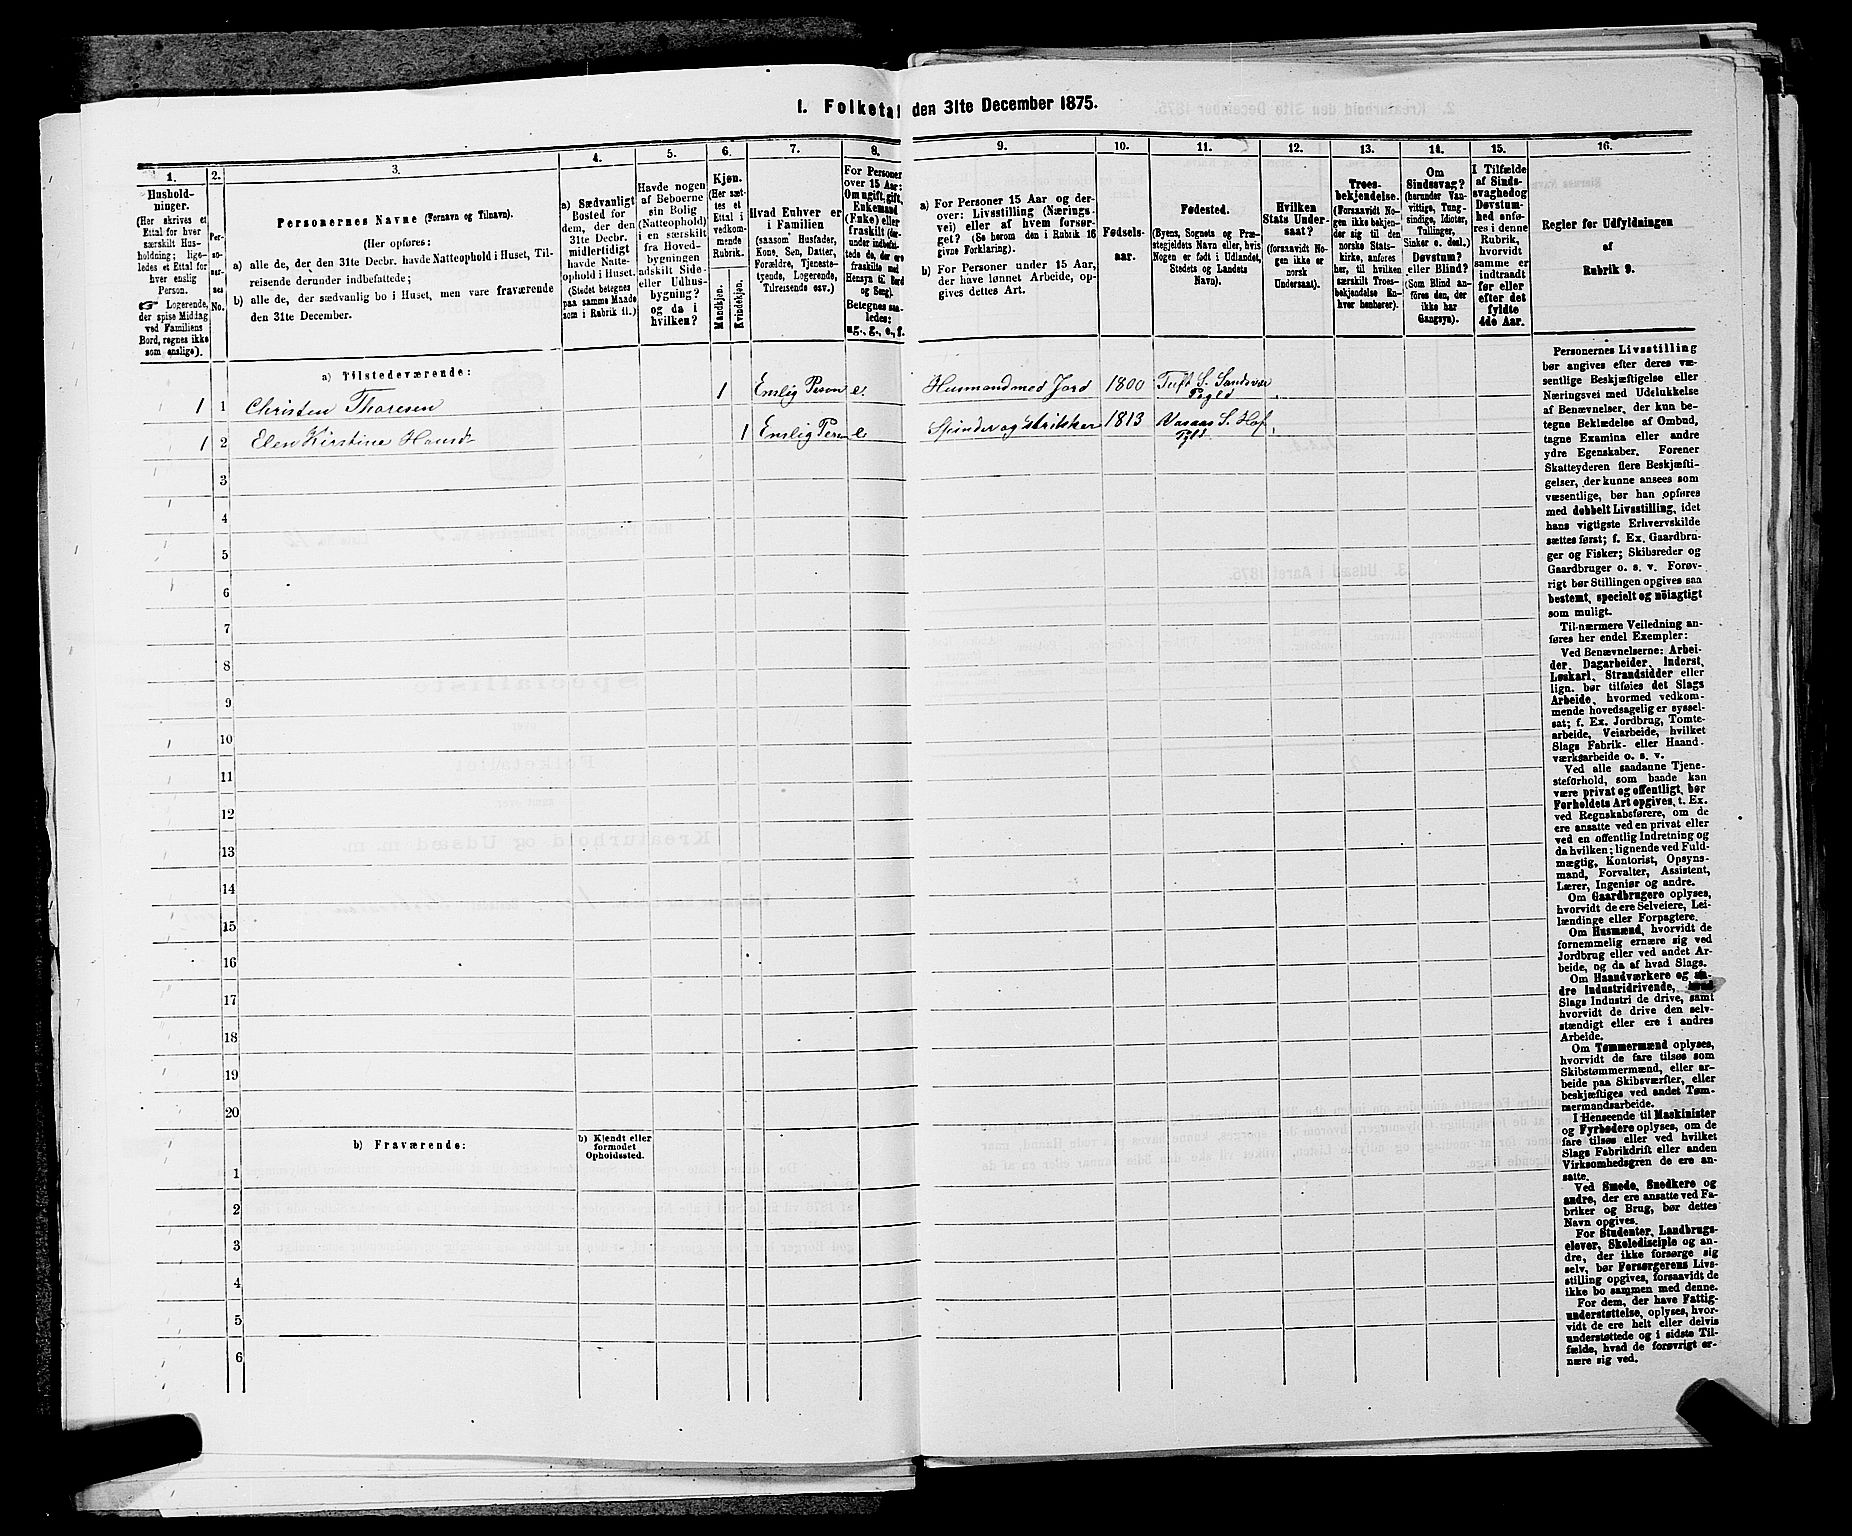 1. Folketal den 31te December 1875.
1. 2. 3. 4. 5. 6. 7. 8. 9. 10. 11. 12. 13. 14. 15. 16.
Hushold-
ninger.
(Her skrives et
Ettal for hver
særskilt Hus-
holdning; lige-
ledes et Ettal for
hver enslig
Person.
☞ Logerende,
der spise Middag
ved Familiens
Bord, regnes ikke
som enslige).
Per-
so-
ner-
nes
No.
Personernes Navne (Fornavn og Tilnavn).
(Her opføres:
a) alle de, der den 31te Decbr. havde Natteophold i Huset, Til-
reisende derunder indbefattede;
b) alle de, der sædvanlig bo i Huset, men vare fraværende
den 31te December.
a) Sædvanligt
Bosted for
dem, der den
31te Decbr.
midlertidigt
havde Natte-
ophold i Huset.
(Stedet betegnes
paa samme Maade
som i Rubrik 11.)
Havde nogen
af Beboerne
sin Bolig
(Natteophold)
i en særskilt
fra Hoved-
bygningen
adskilt Side-
eller Udhus-
bygning?
og da i
hvilken?
Kjøn.
(Her sæt-
tes et
Ettal i
vedkom-
mende
Rubrik.
Mandkjøn.
Kvindekjøn.
Hvad Enhver er
i Familien
(saasom Husfader,
Kone, Søn, Datter,
Forældre, Tjeneste-
tyende, Logerende,
Tilreisende osv.)
For Personer
over 15 Aar:
Om ugift, gift,
Enkemand
(Enke) eller
fraskilt
Betegnes saa-
ledes:
ug., g., e., f.
a) For Personer 15 Aar og der-
over: Livsstilling (Nærings-
vei) eller af hvem forsør-
get? (Se herom den i Rubrik 16
givne Forklaring).
b) For Personer under 15 Aar,
der have lønnet Arbeide, op-
gives dettes Art.
Fødsels-
aar.
Fødested.
(Byens, Sognets og Præ-
stegjeldets Navn eller, hvis
Nogen er født i Udlandet,
Stedets og Landets
Navn).
Hvilken
Stats Under-
saat?
(forsaavidt No-
gen ikke er
norsk
Undersaat).
Troes-
bekjendelse.
(Forsaavidt No-
gen ikke bekjen-
der sig til den
norske Stats-
kirke, anføres
her, til hvilken
særskilt Troes-
bekjendelse En-
hver henhører).
Om
Sindssvag?
(herunder Van-
vittige, Tung-
sindige, Idioter,
Tullinger,
Sinker o. desl.)
Døvstum?
eller Blind?
(Som Blind an-
føres den, der
ikke har
Gangsyn).
I Tilfælde
af Sinds-
svaghed og
Døvstum-
hed anfø-
res i denne
Rubrik,
hvorvidt
samme er
indtraadt
før eller
efter det
fyldte
4de Aar.
Regler for Udfyldningen
af
Rubrik 9.
a) Tilstedeværende:
1 1 Christen Thoresen 1 Enslig Person e. Husmand med Jord 1800 Tuft S. Sandsvær
Pgld
1 2 Elen Kirstine Hansd. 1 Enslig Person e Spinder og strikker 1813 Vasaas S. Hof
Pgld.
3
4
5
6
7
8
9
10
11
12
13
14
15
16
17
18
19
20
b) Fraværende:
b) Kjendt eller
formodet
Opholdssted.
1
2
3
4
5
6
Personernes Livsstilling
bør angives efter deres væ-
sentlige Beskjæftigelse eller
Næringsvei med Udelukkelse
af Benævnelser, der kun be-
tegne Beklædelse af Ombud,
tagne Examina eller andre
ydre Egenskaber. Forener
Skatteyderen flere Beskjæfti-
gelser, der kunne ansees som
væsentlige, bør han opføres
med dobbelt Livsstilling, idet
hans vigtigste Erhvervskilde
sættes først; f. Ex. Gaardbru-
ger og Fisker; Skibsreder og
Gaardbruger o. s. v. Forøv-
rigt bør Stillingen opgives saa
bestemt, specielt og nöiagtigt
som muligt.
Til nærmere Veiledning an-
føres her endel Exempler:
Ved Benævnelserne: Arbei-
der, Dagarbeider, Inderst,
Løskarl, Strandsidder eller
lign. bør tilføies det Slags
Arbeide, hvormed vedkom-
mende hovedsagelig er syssel-
sat; f. Ex. Jordbrug, Tomte-
arbeide, Veiarbeide, hvilket
Slags Fabrik- eller Haand-
værksarbeide o. s. v.
Ved alle saadanne Tjene-
steforhold, som baade kan
være privat og offentligt, bør
Forholdets Art opgives, t. Ex.
ved Regnskabsførere, om de
ere ansatte ved en privat eller
ved en offentlig Indretning og
da hvilken; lignende ved Fuld-
mægtig, Kontorist, Opsyns-
mand, Forvalter, Assistent,
Lærer, Ingeniør og andre.
Om Gaardbrugere oplyses,
hvorvidt de ere Selveiere, Lei-
lændinge eller Forpagtere.
Om Husmænd, hvorvidt de
fornemmelig ernære sig ved
Jordbrug eller ved andet Ar-
beide, og da af hvad Slags.
Om Haandværkere og an-
dre Industridrivende, hvad
Slags Industri de drive, samt
hvorvidt de drive den selv-
stændigt eller ere i andres
Arbeide.
Om Tømmermænd oplyses,
hvorvidt de fare tilsøs som
Skibstømmermænd, eller ar-
beide paa Skibsværfter, eller
beskjæftiges ved andet Tøm-
mermandsarbeide.
I Henseende til Maskinister
og Fyrbødere oplyses, om de
fare tilsøs eller ved hvilket
Slags Fabrikdrift eller anden
Virksomhedsgren de ere an-
satte.
Ved Smede, Snedkere og
andre, der ere ansatte ved Fa-
briker og Brug, bør dettes
Navn opgives.
For Studenter, Landbrugs-
elever, Skoledisciple og an-
dre, der ikke forsørge sig
selv, bør Forsørgerens Livs-
stilling opgives, forsaavidt de
ikke bo sammen med denne.
For dem, der have Fattig-
understøttelse, oplyses, hvor-
vidt de ere helt eller delvis
understøttede og i sidste Til-
fælde, hvad de forøvrigt er-
nære sig ved.